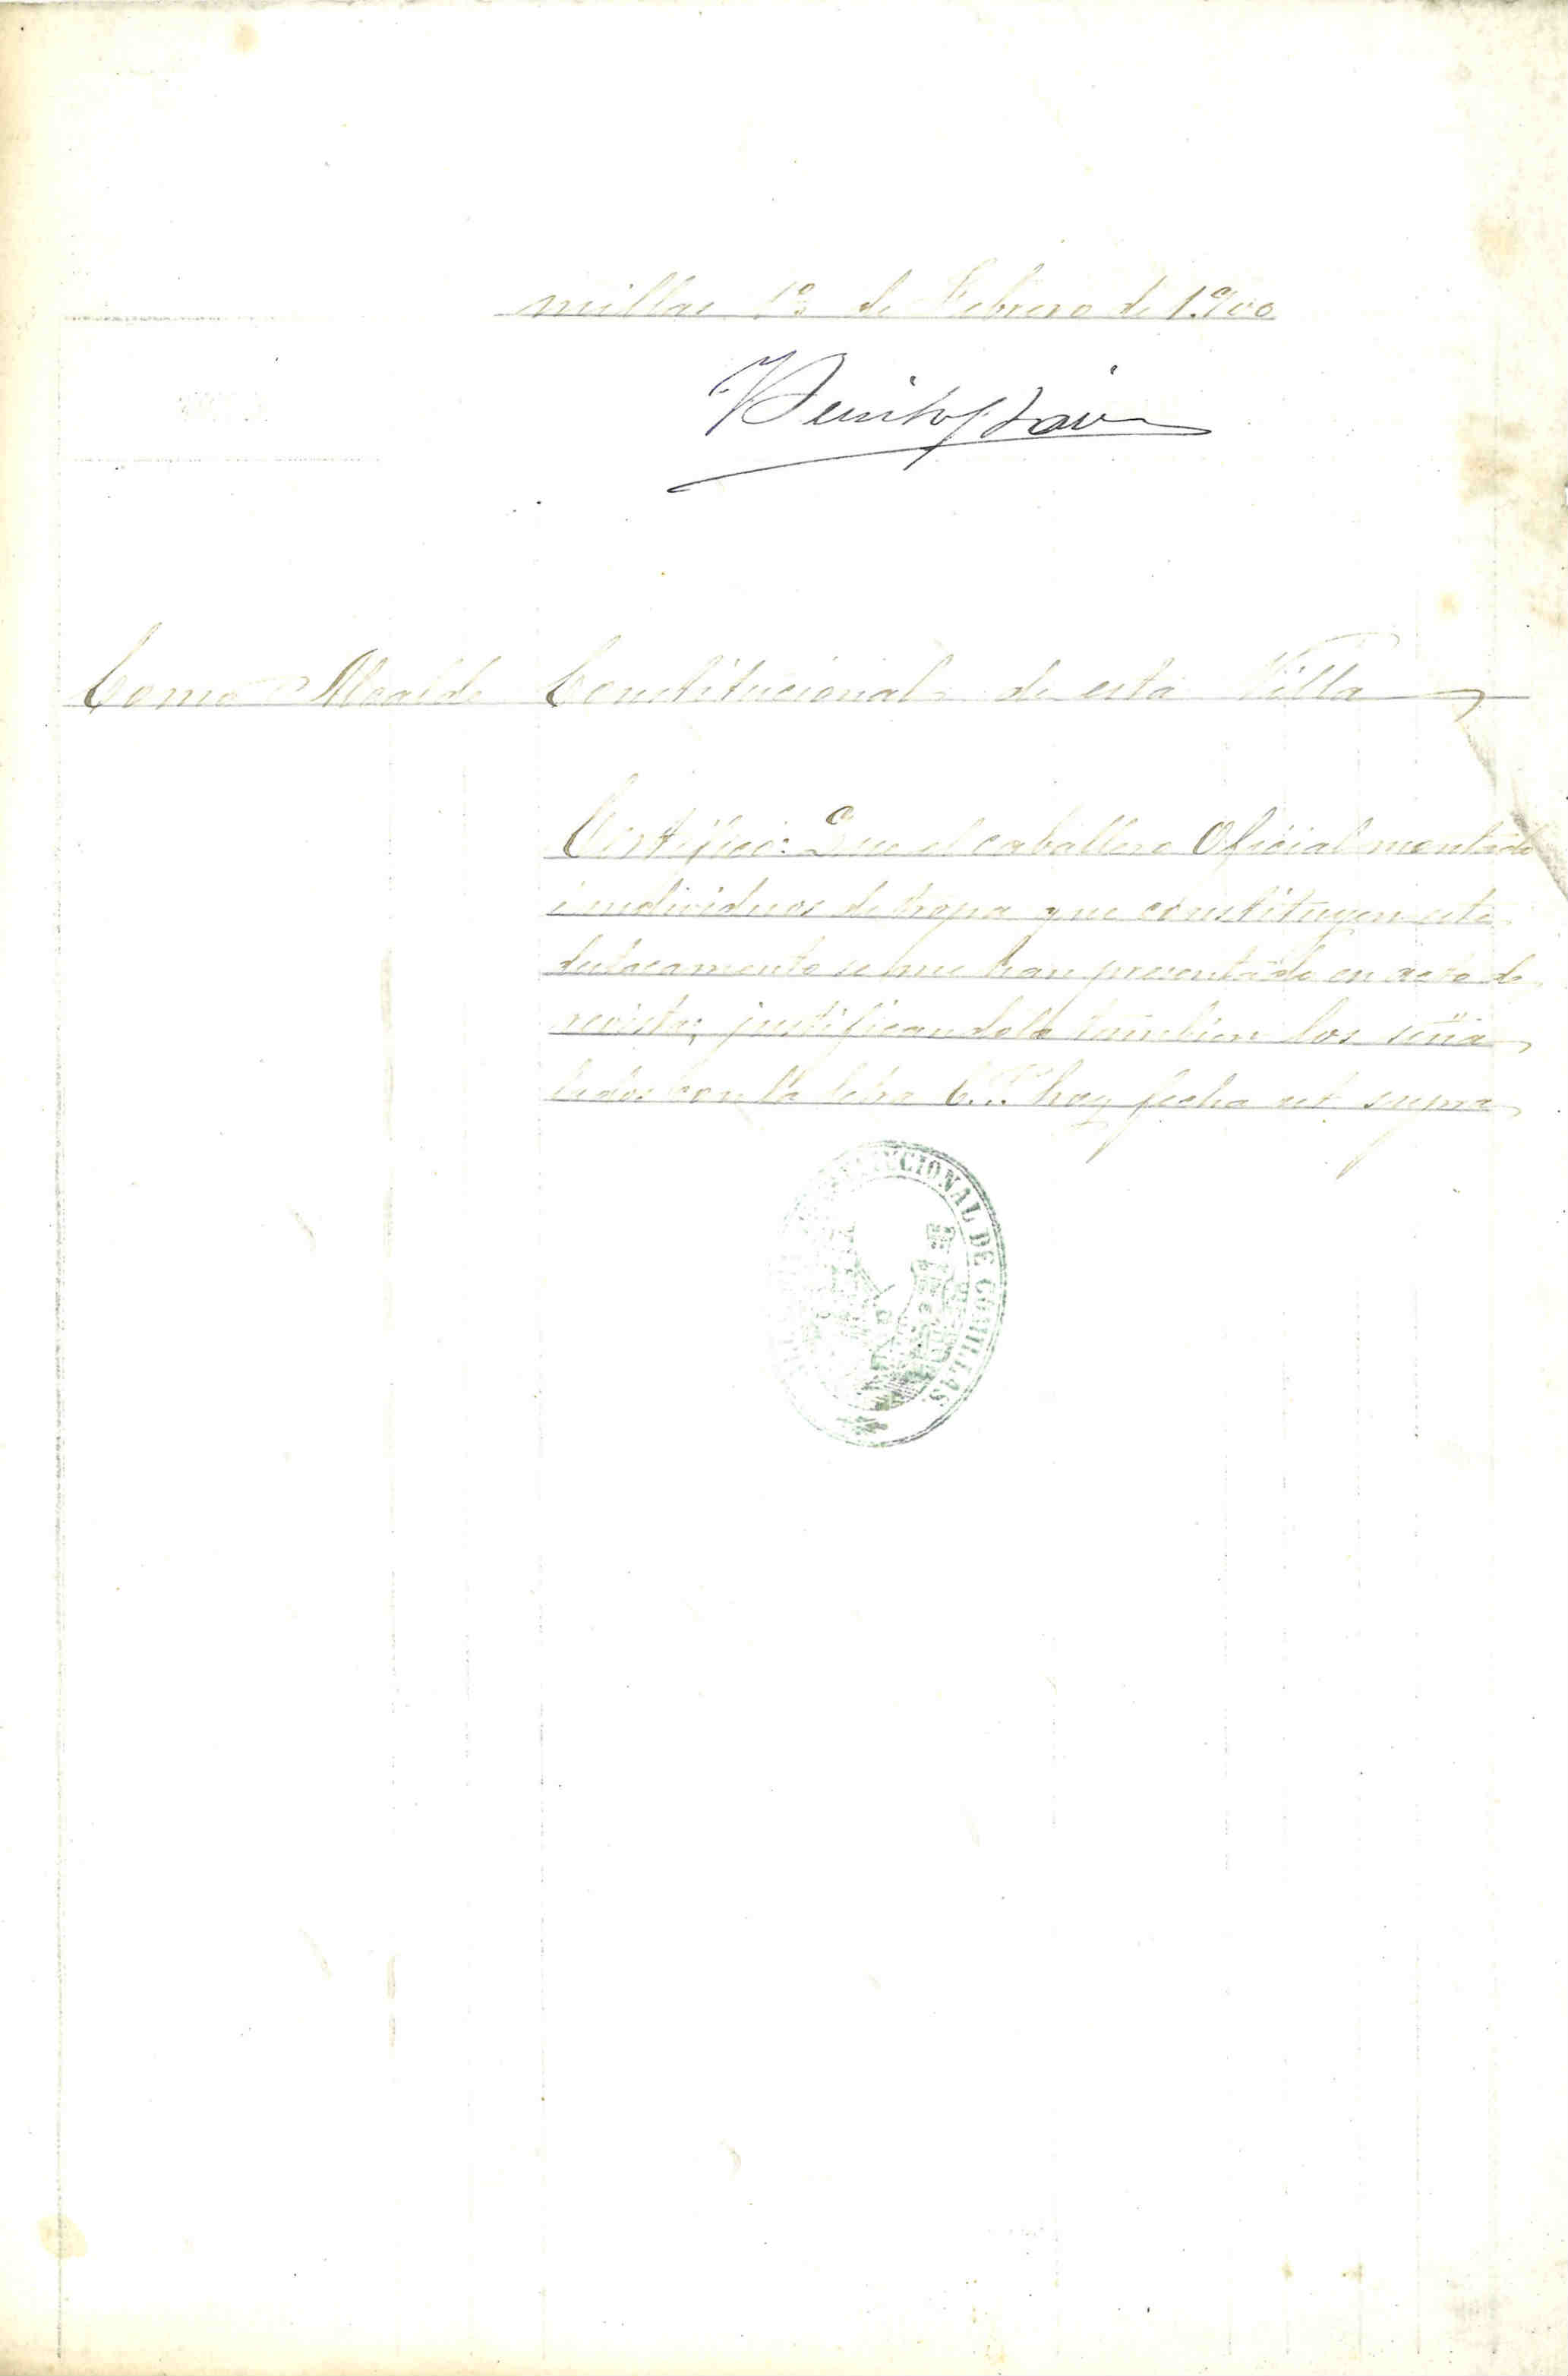 millas 1º de Febrero de 1.900
Benito
Como Alcalde Constitucional de esta Villa
Certifico: Que el caballero Oficial montado
é individuos de tropa que constituyen este
destacamento se me han presentado en acto de
revista, justificandola tambien los seña
lados con la letra C.P. hoy fecha ut supra
CIONAL DE COMILLAS